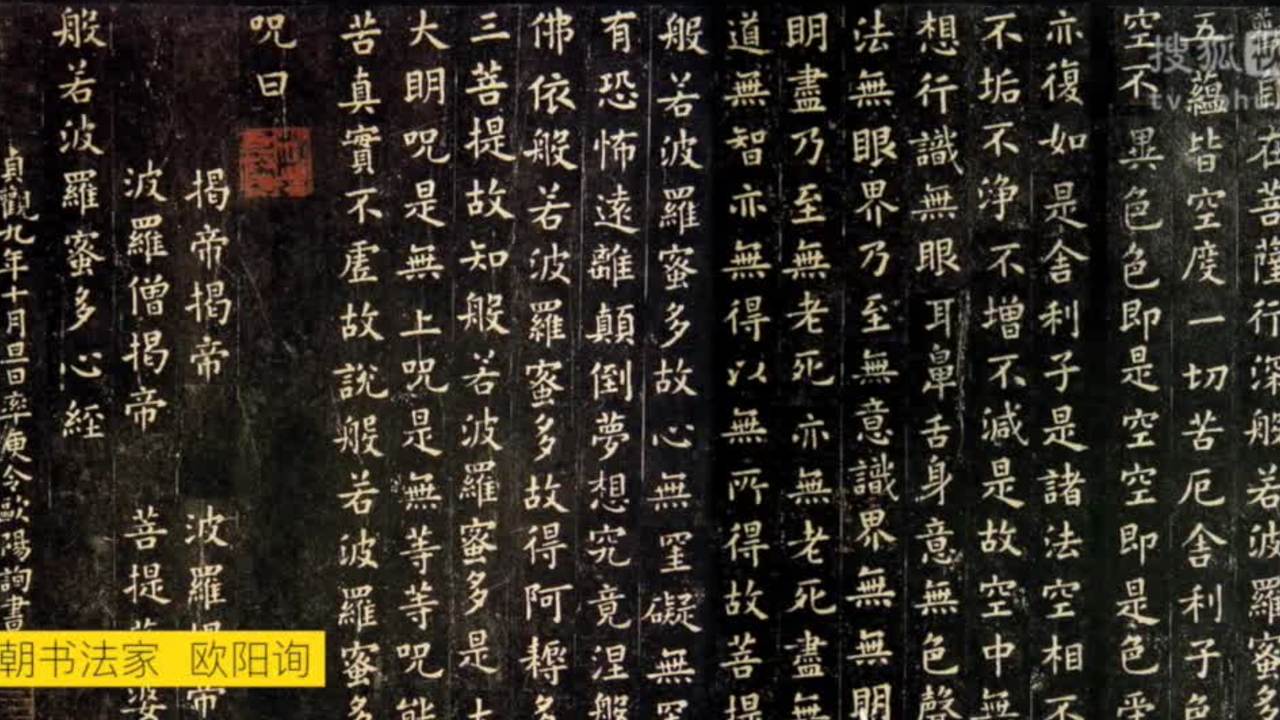 在菩薩行深般若波羅蜜多
五蘊皆空度一切苦厄舍利子色
空不異色色即是空空即是色受
亦復如是舍利子是諸法空相不
不垢不淨不增不減是故空中無
想行識無眼耳鼻舌身意無色聲
法無眼界乃至無意識界無無明
明盡乃至無老死亦無老死盡無
道無智亦無得以無所得故菩提
般若波羅蜜多故心無罣礙無罣
有恐怖遠離顛倒夢想究竟涅般
佛依般若波羅蜜多故得阿耨多
三菩提故知般若波羅蜜多是大
大明咒是無上咒是無等等咒能
苦真實不虛故說般若波羅蜜多
咒曰
揭帝揭帝 波羅揭帝
波羅僧揭帝 菩提莎婆
般若波羅蜜多心經
貞觀九年十月旦日率更令歐陽詢書
朝书法家 欧阳询
搜狐